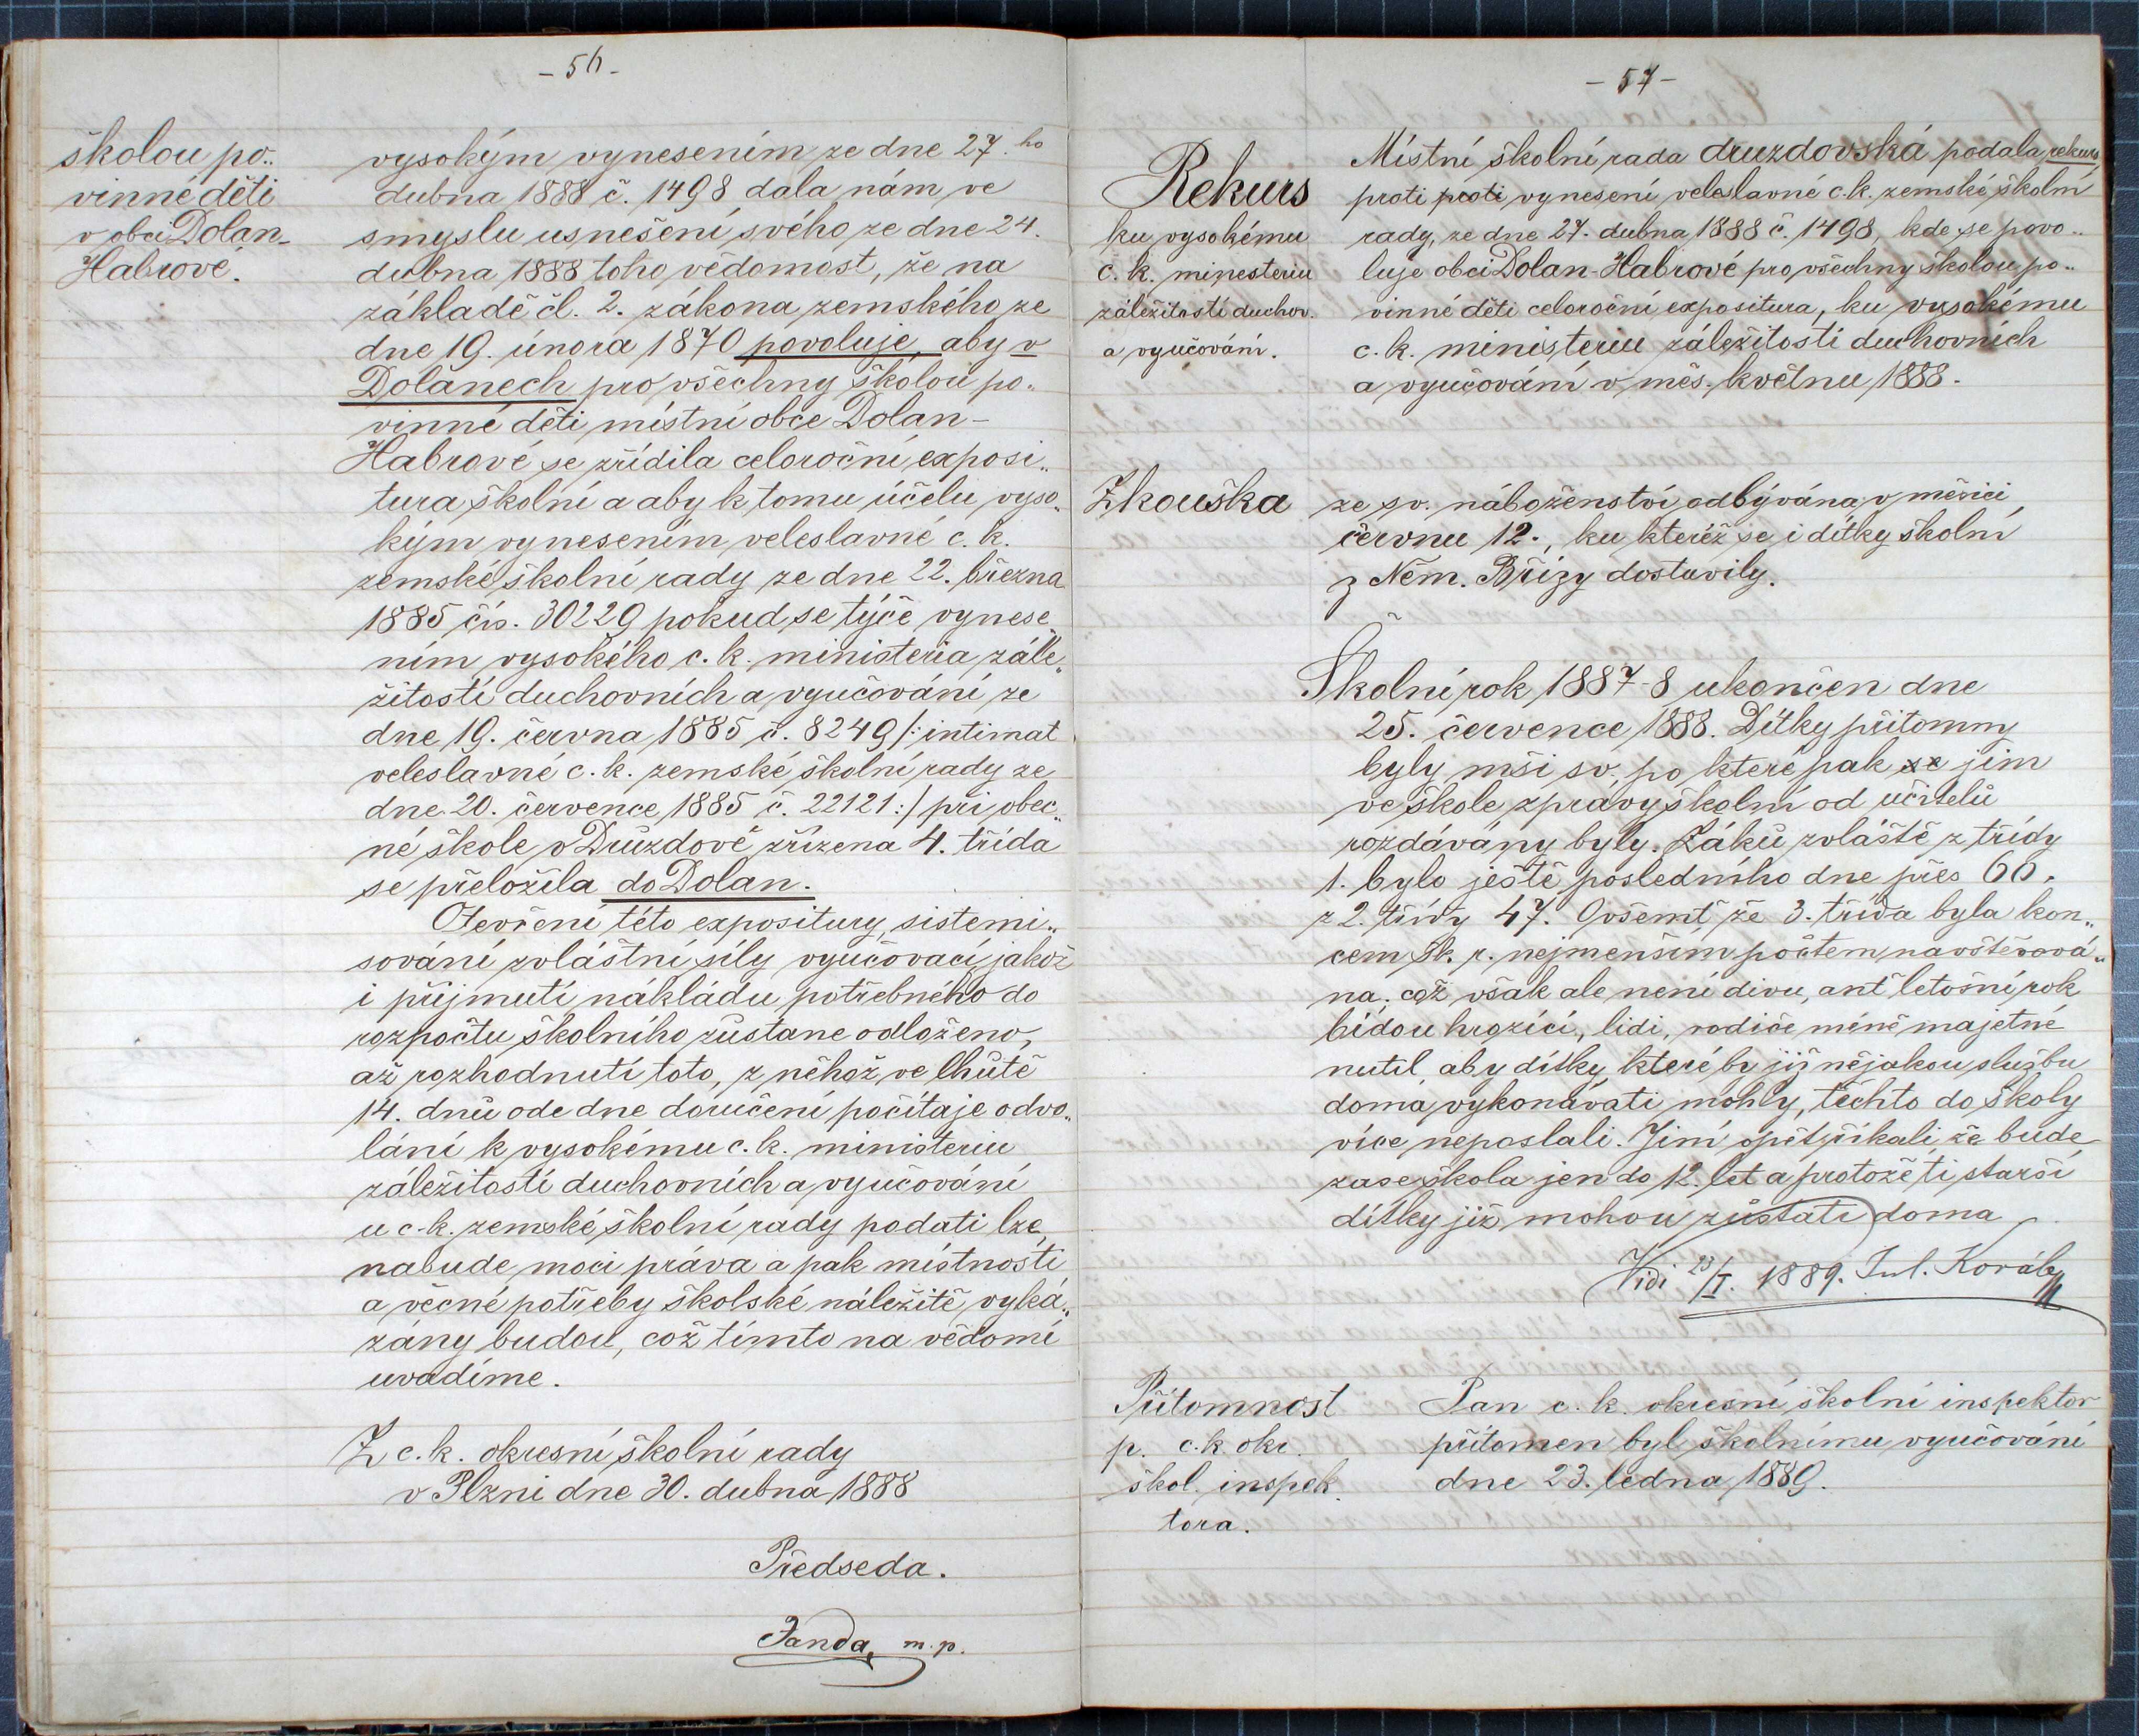 - 56 -
školou po„
vinné děti
v obci Dolan-
Habrové.
vysokým vynesením ze dne 27.ho
dubna 1888 č. 1498 dala nám ve
smyslu usnešení svého ze dne 24.
dubna 1888 toho vědomost, že na
základě čl. 2. zákona zemského ze
dne 19. února 1870 povoluje, aby v
Dolanech pro všechny školou po„
vinné děti místní obce Dolan-
Habrové se zřídila celoroční exposi„
tura školní a aby k tomu účelu vyso„
kým vynesením veleslavné c. k.
zemské školní rady ze dne 22. března
1885 čís. 30229 pokud se týče vynese„
ním vysokého c. k. ministeria zále„
žitostí duchovních a vyučování ze
dne 19. června 1885 č. 8249 /: intimat
veleslavné c. k. zemské školní rady ze
dne 20. července 1885 č. 22121 :/ při obec„
né škole v Druzdově zřízena 4. třída
se přeložila do Dolan.
Otevření této expositury, sistemi„
sování zvláštní síly vyučovací jakož
i přijmutí nákládu potřebného do
rozpočtu školního zůstane odloženo,
až rozhodnutí toto, z něhož ve lhůtě
14. dnů ode dne doručení počítaje odvo„
lání k vysokému c. k. ministeriu
záležitostí duchovních a vyučování
u c. k. zemské školní rady podati lze,
nabude moci práva a pak místnosti
a věcné potřeby školské náležitě vyká„
zány budou, což tímto na vědomí
uvádíme.
Z c. k. okresní školní rady
v Plzni dne 30. dubna 1888
Předseda.
Janda, m. p.
- 57 -
Rekurs
ku vysokému
c. k. minesteriu
záležitostí duchov.
a vyučování.
Místní školní rada druzdovská podala rekurs
proti proti vynesení veleslavné c. k. zemské školní
rady, ze dne 27. dubna 1888 č. 1498, kde se povo„
luje obci Dolan-Habrové pro všechny školou po„
vinné děti celoroční expositura, ku vysokému
c. k. ministeriu záležitostí duchovních
a vyučování v měs. květnu 1888.
Zkouška ze sv. náboženství odbývána v měsíci
červnu 12., ku kteréž se i dítky školní
z Něm. Břízy dostavily.
Školní rok 1887-8 ukončen dne
25. července 1888. Dítky přítomny
byly mši sv. po které pak se jim
ve škole zprávy školní od učitelů
rozdávány byly. Žáků zvláště z třídy
1. bylo ještě posledního dne přes 60.
z 2. třídy 47. Ovšemť, že 3. třída byla kon„
cem šk. r. nejmenším počtem navštěvová„
na. což však ale není divu, ant letošní rok
bídou hrozící, lidi, rodiče méně majetné
nutil, aby dítky které by již nějakou službu
doma vykonávati mohly, těchto do školy
více neposlali. Jiní opět říkali, že bude
zase škola jen do 12. let a protože ti starší
dítky již mohou zůstati doma
Vidi 23/I. 1889. Jul. Koráb
Přítomnost
p. c. k. okr.
škol. inspek
tora.
Pan c. k. okresní školní inspektor
přítomen byl školnímu vyučování
dne 23. ledna 1889.